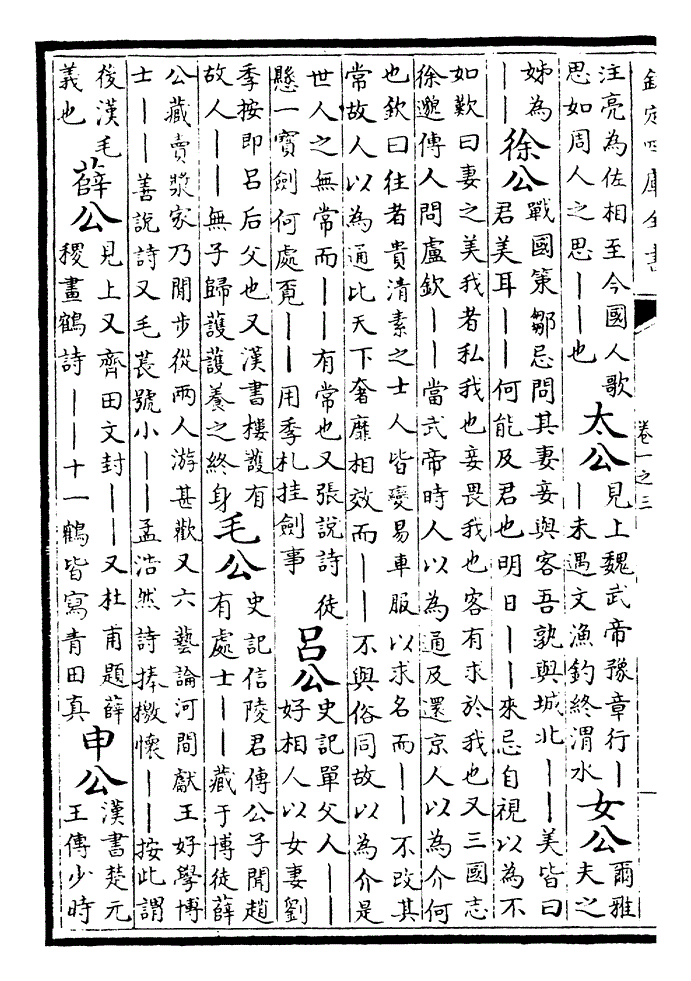 欽定四庫全書
卷一之三
注亮為佐相至今國人歌
思如周人之思——也
太公
見上魏武帝豫章行—
—未遇文漁釣終渭水
女公
爾雅
夫之
姊為
——
徐公
戰國策鄒忌問其妻妾與客吾孰與城北——美皆曰
君美耳——何能及君也明日——來忌自視以為不
如歎曰妻之美我者私我也妾畏我也客有求於我也又三國志
徐邈傳人問盧欽——當武帝時人以為通及還京人以為介何
也欽曰往者貴清素之士人皆變易車服以求名而——不改其
常故人以為通比天下奢靡相效而——不與俗同故以為介是
世人之無常而——有常也又張說詩徒
懸一寶劍何處覔——用季札挂劍事
呂公
史記單父人——
好相人以女妻劉
季按即呂后父也又漢書樓護有
故人——無子歸護護養之終身
毛公
史記信陵君傳公子聞趙
有處士——藏于博徒薛
公藏賣漿家乃閒步從兩人游甚歡又六藝論河間獻王好學博
士——善說詩又毛萇號小——孟浩然詩捧檄懷——按此謂
後漢毛
義也
薛公
見上又齊田文封——又杜甫題薛
稷畫鶴詩——十一鶴皆寫青田真
申公
漢書楚元
王傳少時